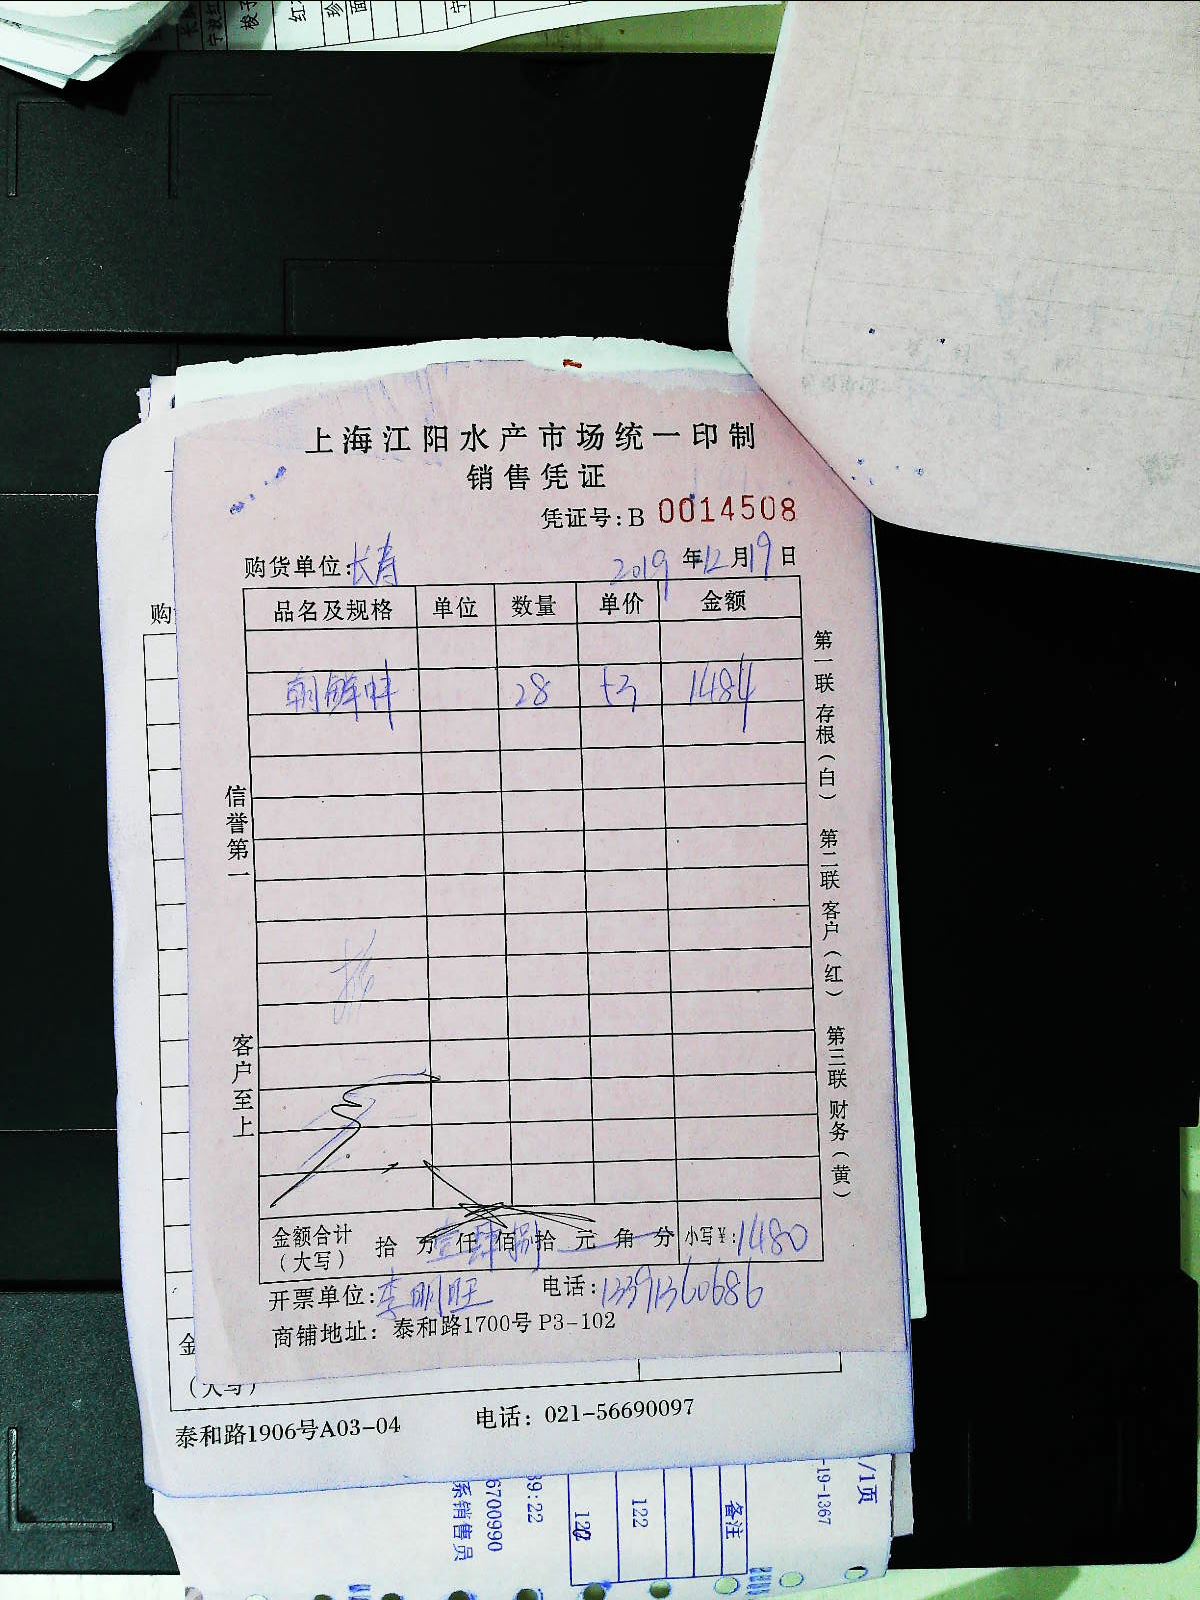 上海江阳水产市场统一印制
销售凭证
凭证号：B 0014508
购货单位：长寿 2019 年 12 月 19 日
品名及规格 单位 数量 单价 金额
朝鲜蚌 28 53 1484
信誉第一
客户至上
第一联 存根（白） 第二联 客户（红） 第三联 财务（黄）
金额合计（大写） 拾 万 壹 仟 肆 佰 捌 拾 元 角 分 小写¥：1480
开票单位：李明旺 电话：13391360686
商铺地址：泰和路1700号 P3-102
购
金
（大写）
泰和路1906号A03-04 电话：021-56690097
/1页
-19-1367
备注
122
122
39:22
6700990
系销售员